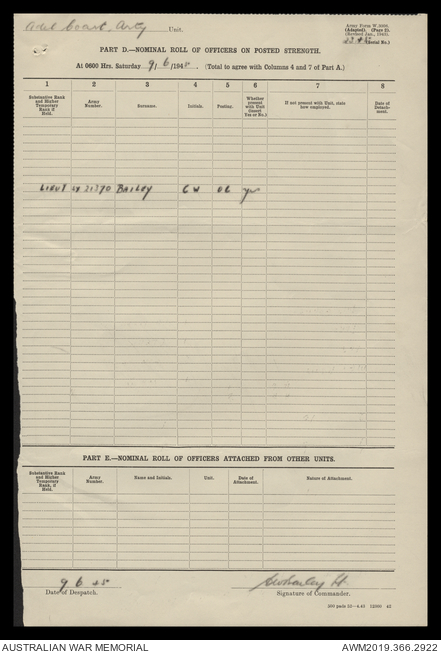 Adel Coast Arty Unit.
Army Form W.3008,
(Adapted). (Part 2).
(Revised Jan., 1943).
(Serial No.)
PART D.—NOMINAL ROLL OF OFFICERS ON POSTED STRENGTH.
At 0600 Hrs. Saturday 9/6/1945. (Total to agree with Columns 4 and 7 of Part A.)
1 2 3 4 5 6 7 8
Substantive Rank and Higher Temporary Rank if Held.
Army Number.
Surname.
Initials.
Posting.
Whether present with Unit (Insert Yes or No.)
If not present with Unit, state how employed.
Date of Detachment.
LIEUT SX 21370 BAILEY C W OC yes
PART E.—NOMINAL ROLL OF OFFICERS ATTACHED FROM OTHER UNITS.
Substantive Rank and Higher Temporary Rank, if Held.
Army Number.
Name and Initials.
Unit.
Date of Attachment.
Nature of Attachment.
9 6 45
Date of Despatch.
Lt
Signature of Commander.
AUSTRALIAN WAR MEMORIAL
AWM2019.366.2922